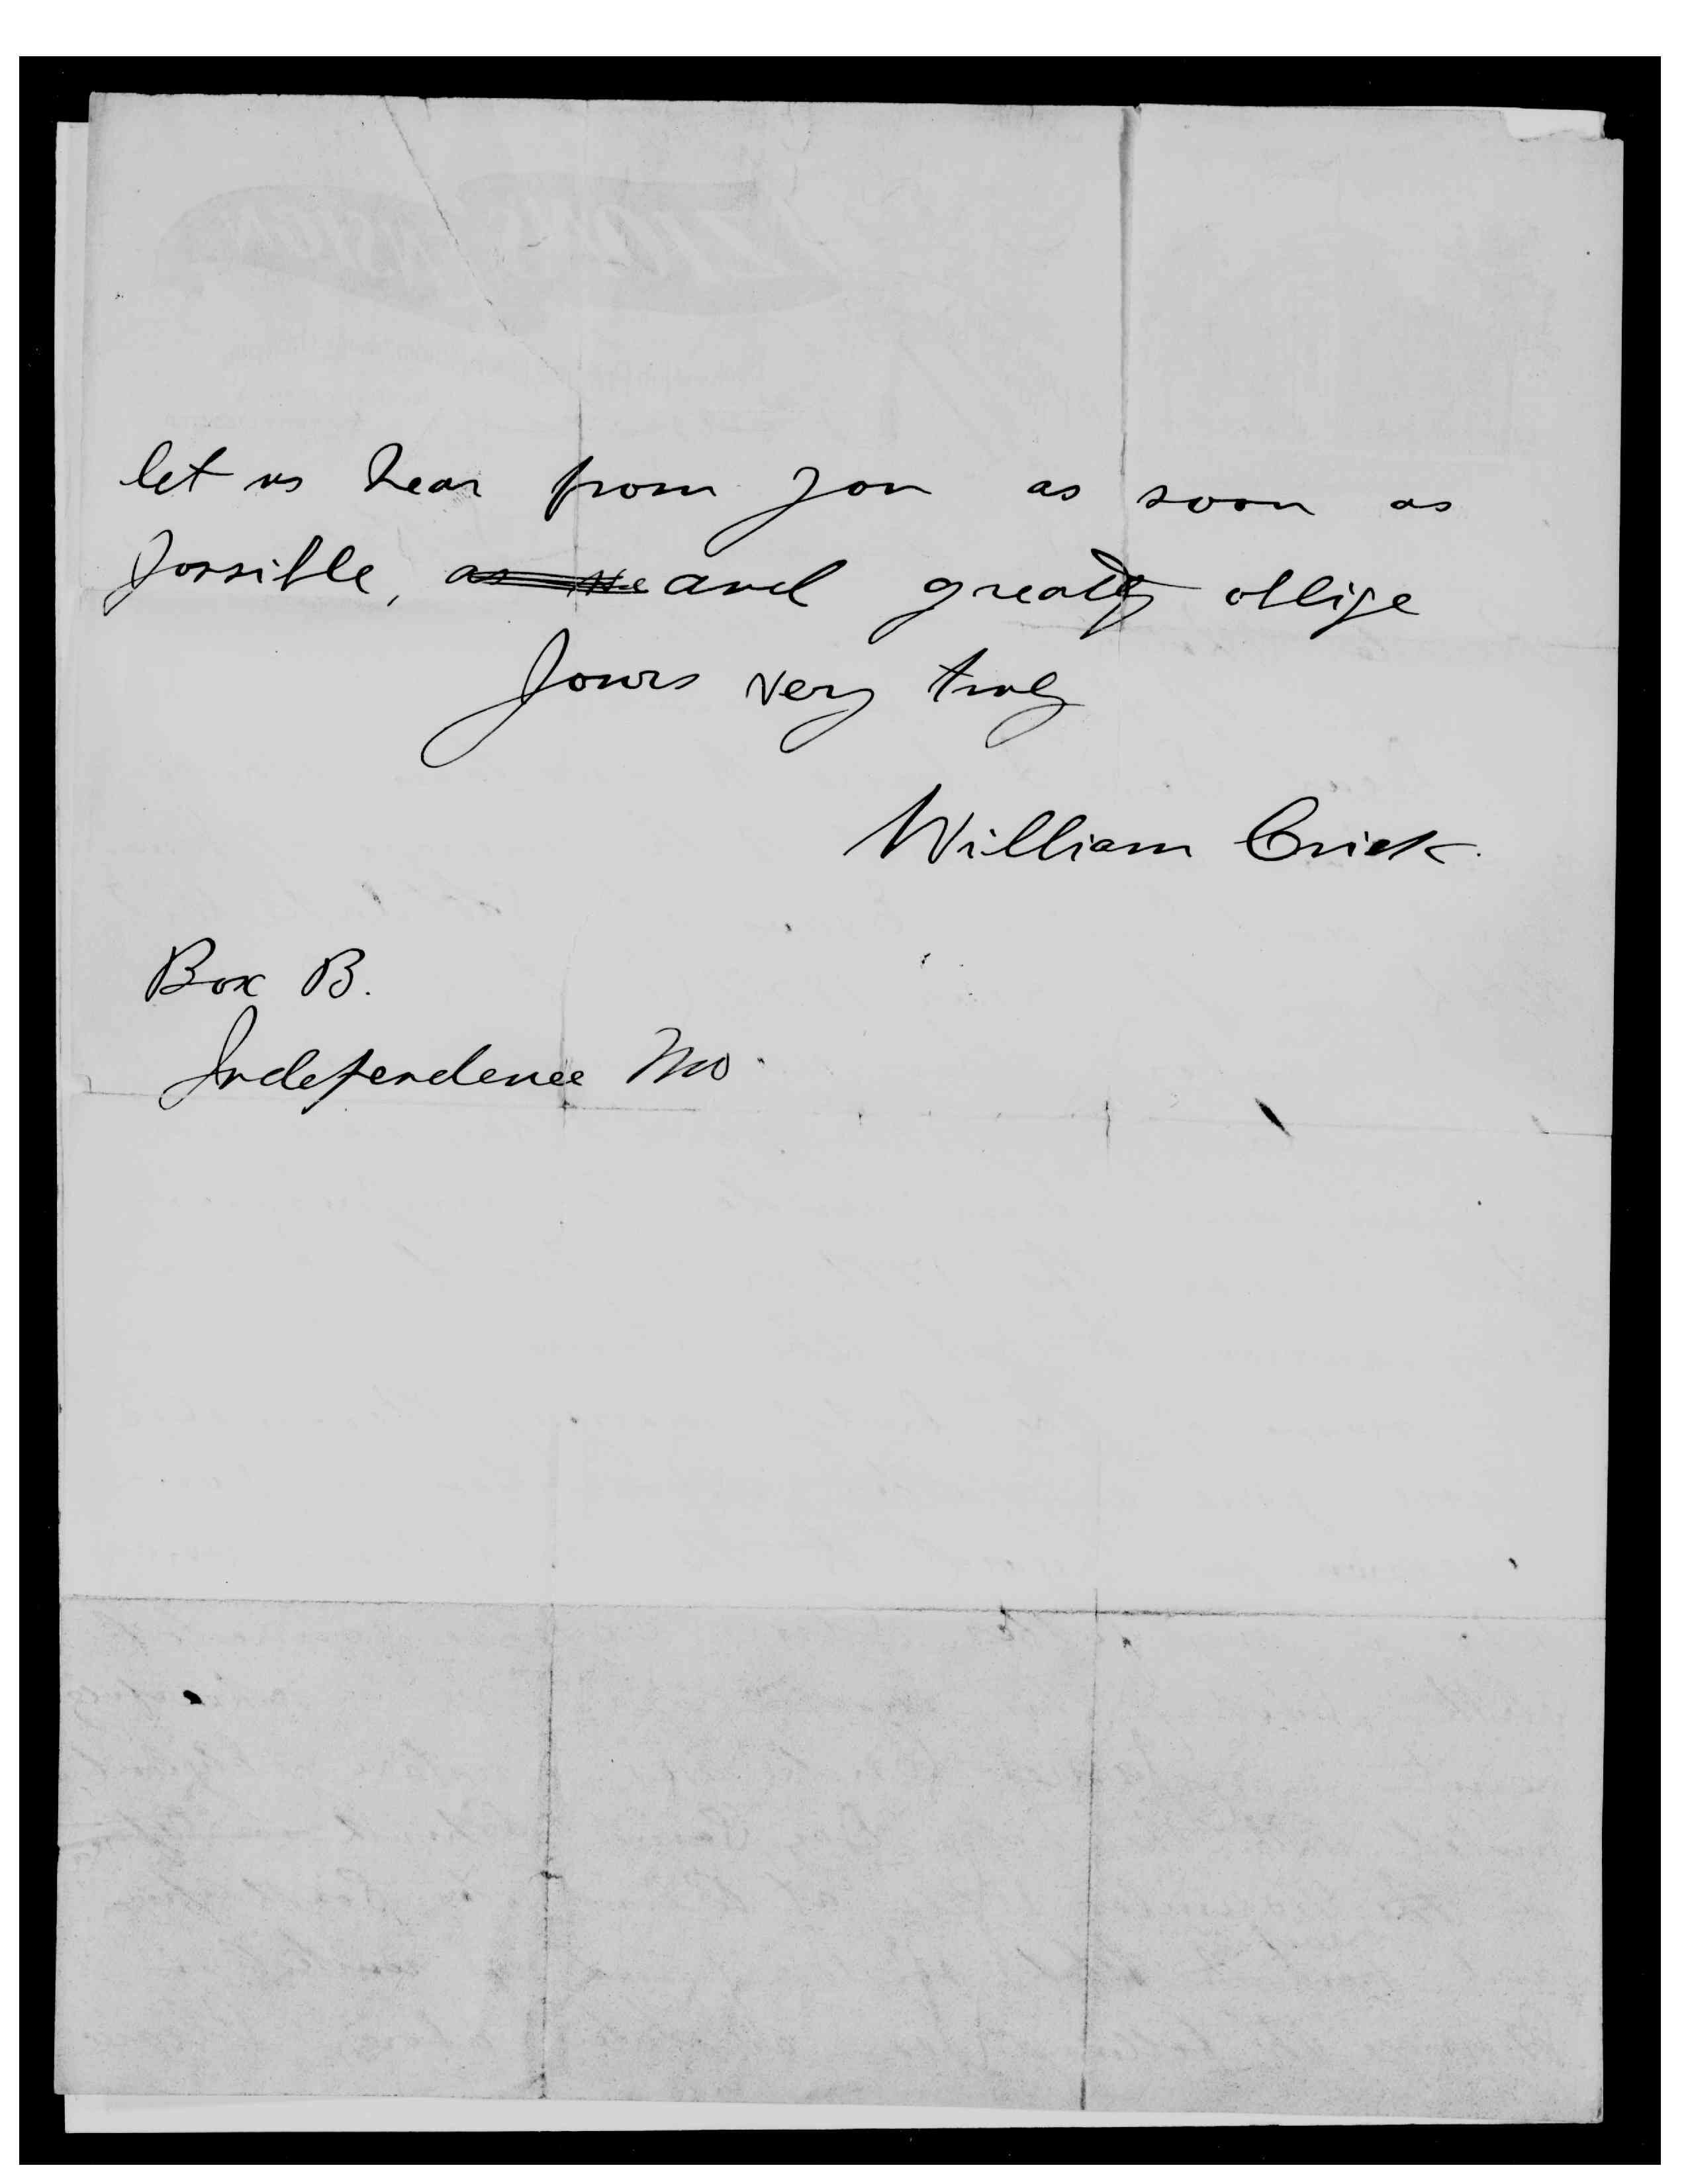 let us hear from you as soon as
possible, ~~as we~~ and greatly oblige
Yours very truly
William Crick.
Box B.
Independence Mo.